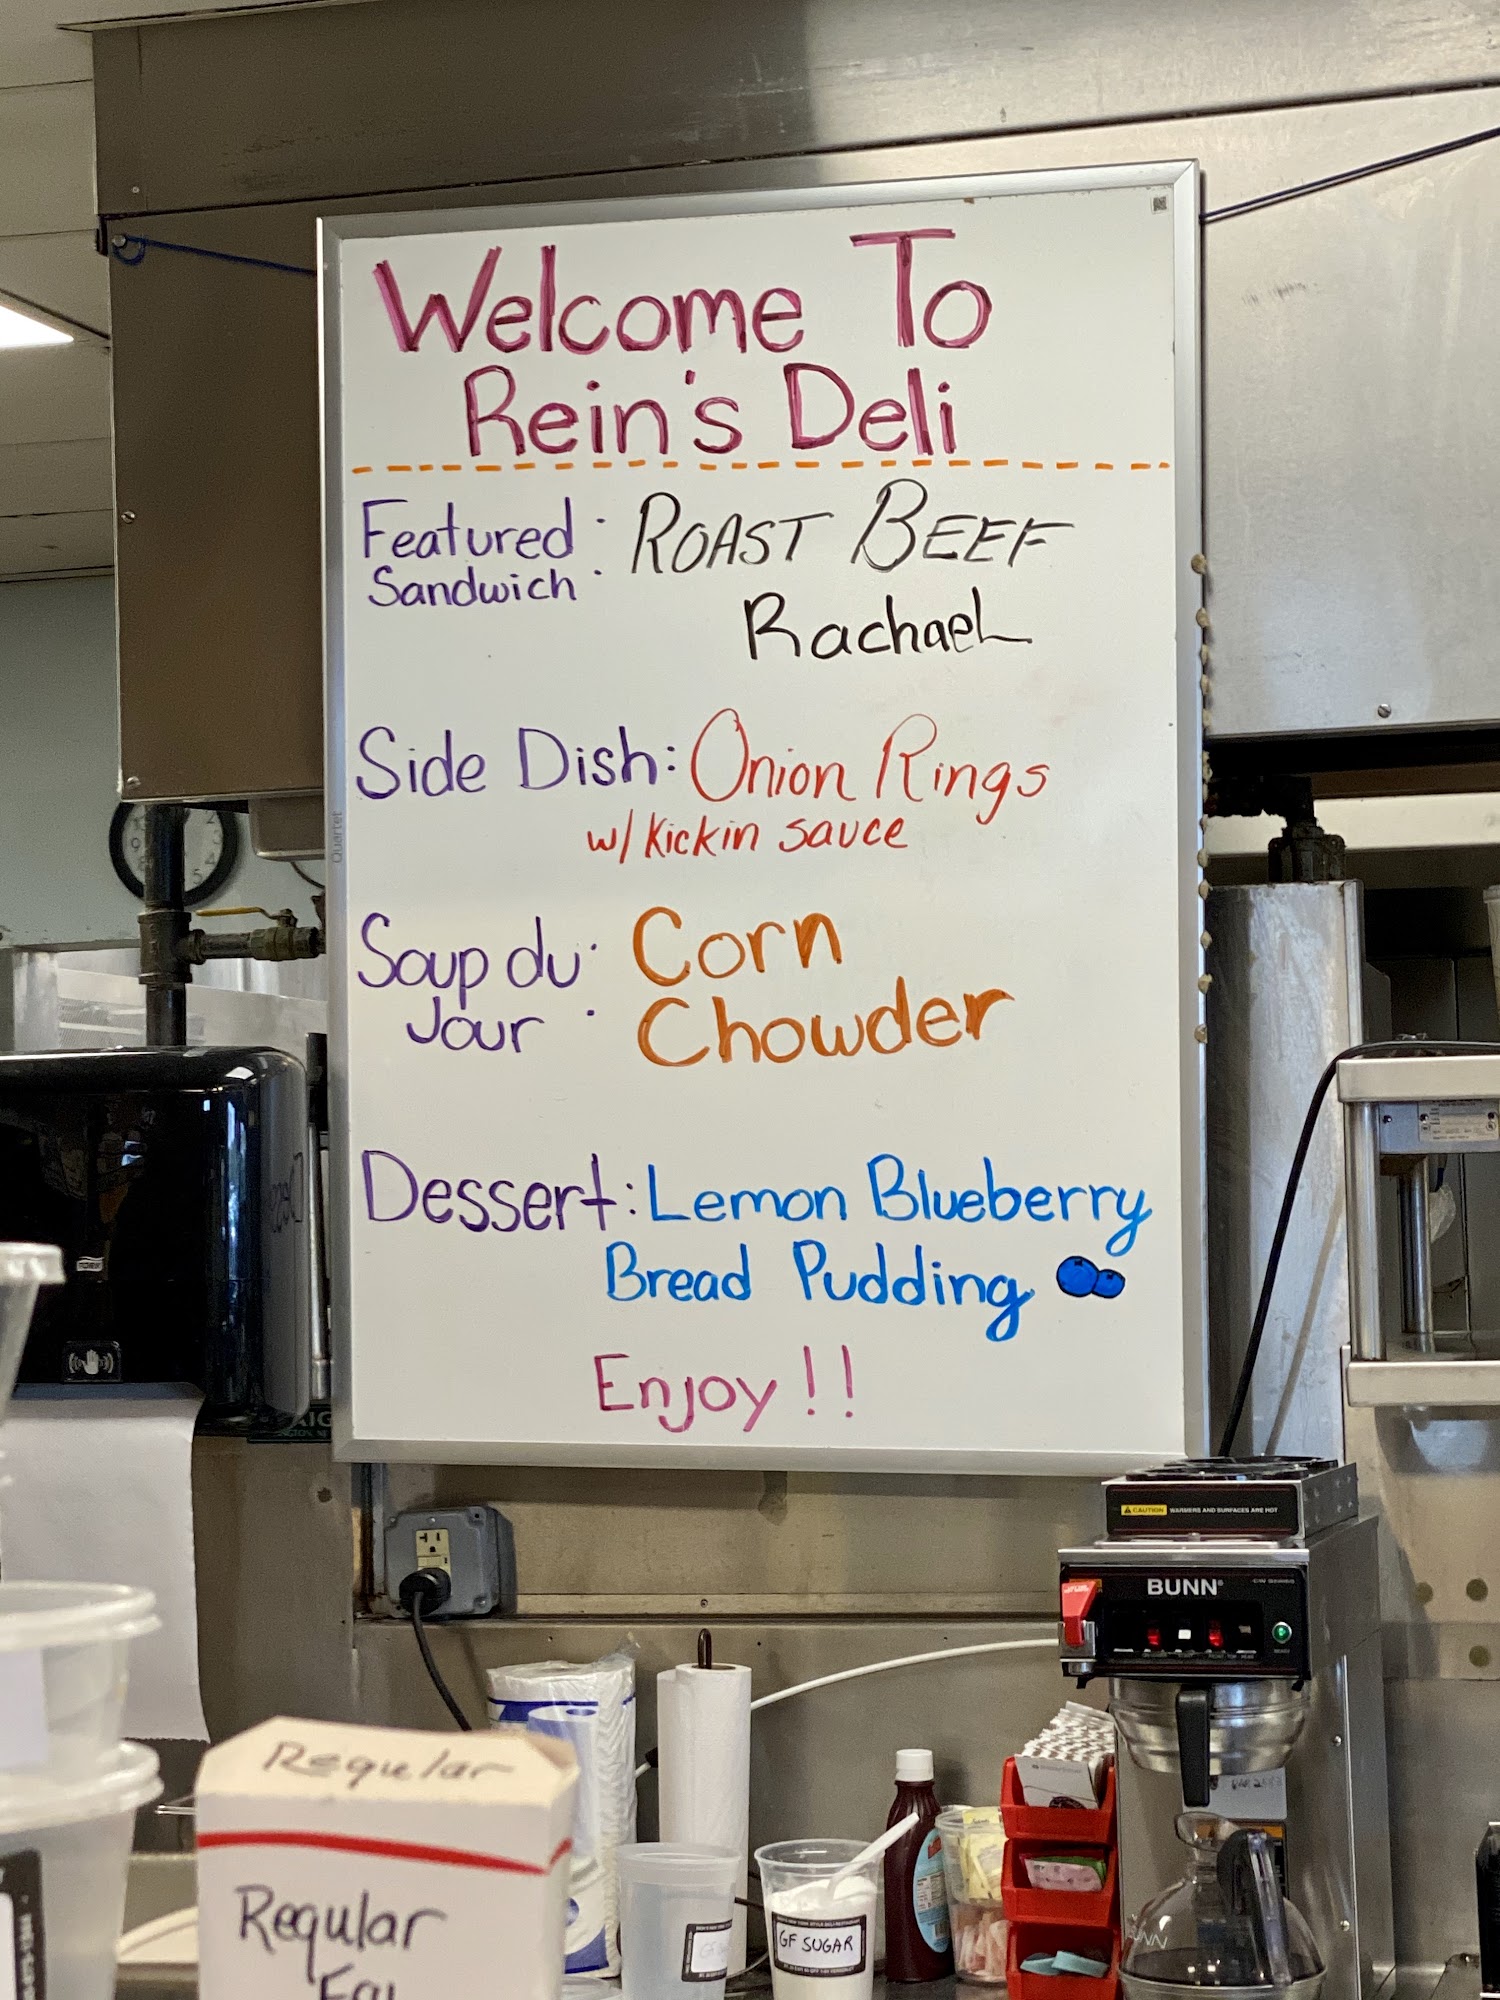 Welcome To
Rein's Deli
Featured : ROAST BEEF
Sandwich Rachael
Side Dish: Onion Rings
w/ Kickin sauce
Soup du : Corn
Jour Chowder
Dessert: Lemon Blueberry
Bread Pudding
Enjoy!!
Quartet
TORK
CAUTION WARMERS AND SURFACES ARE HOT
BUNN
Regular
Regular
GF SUGAR